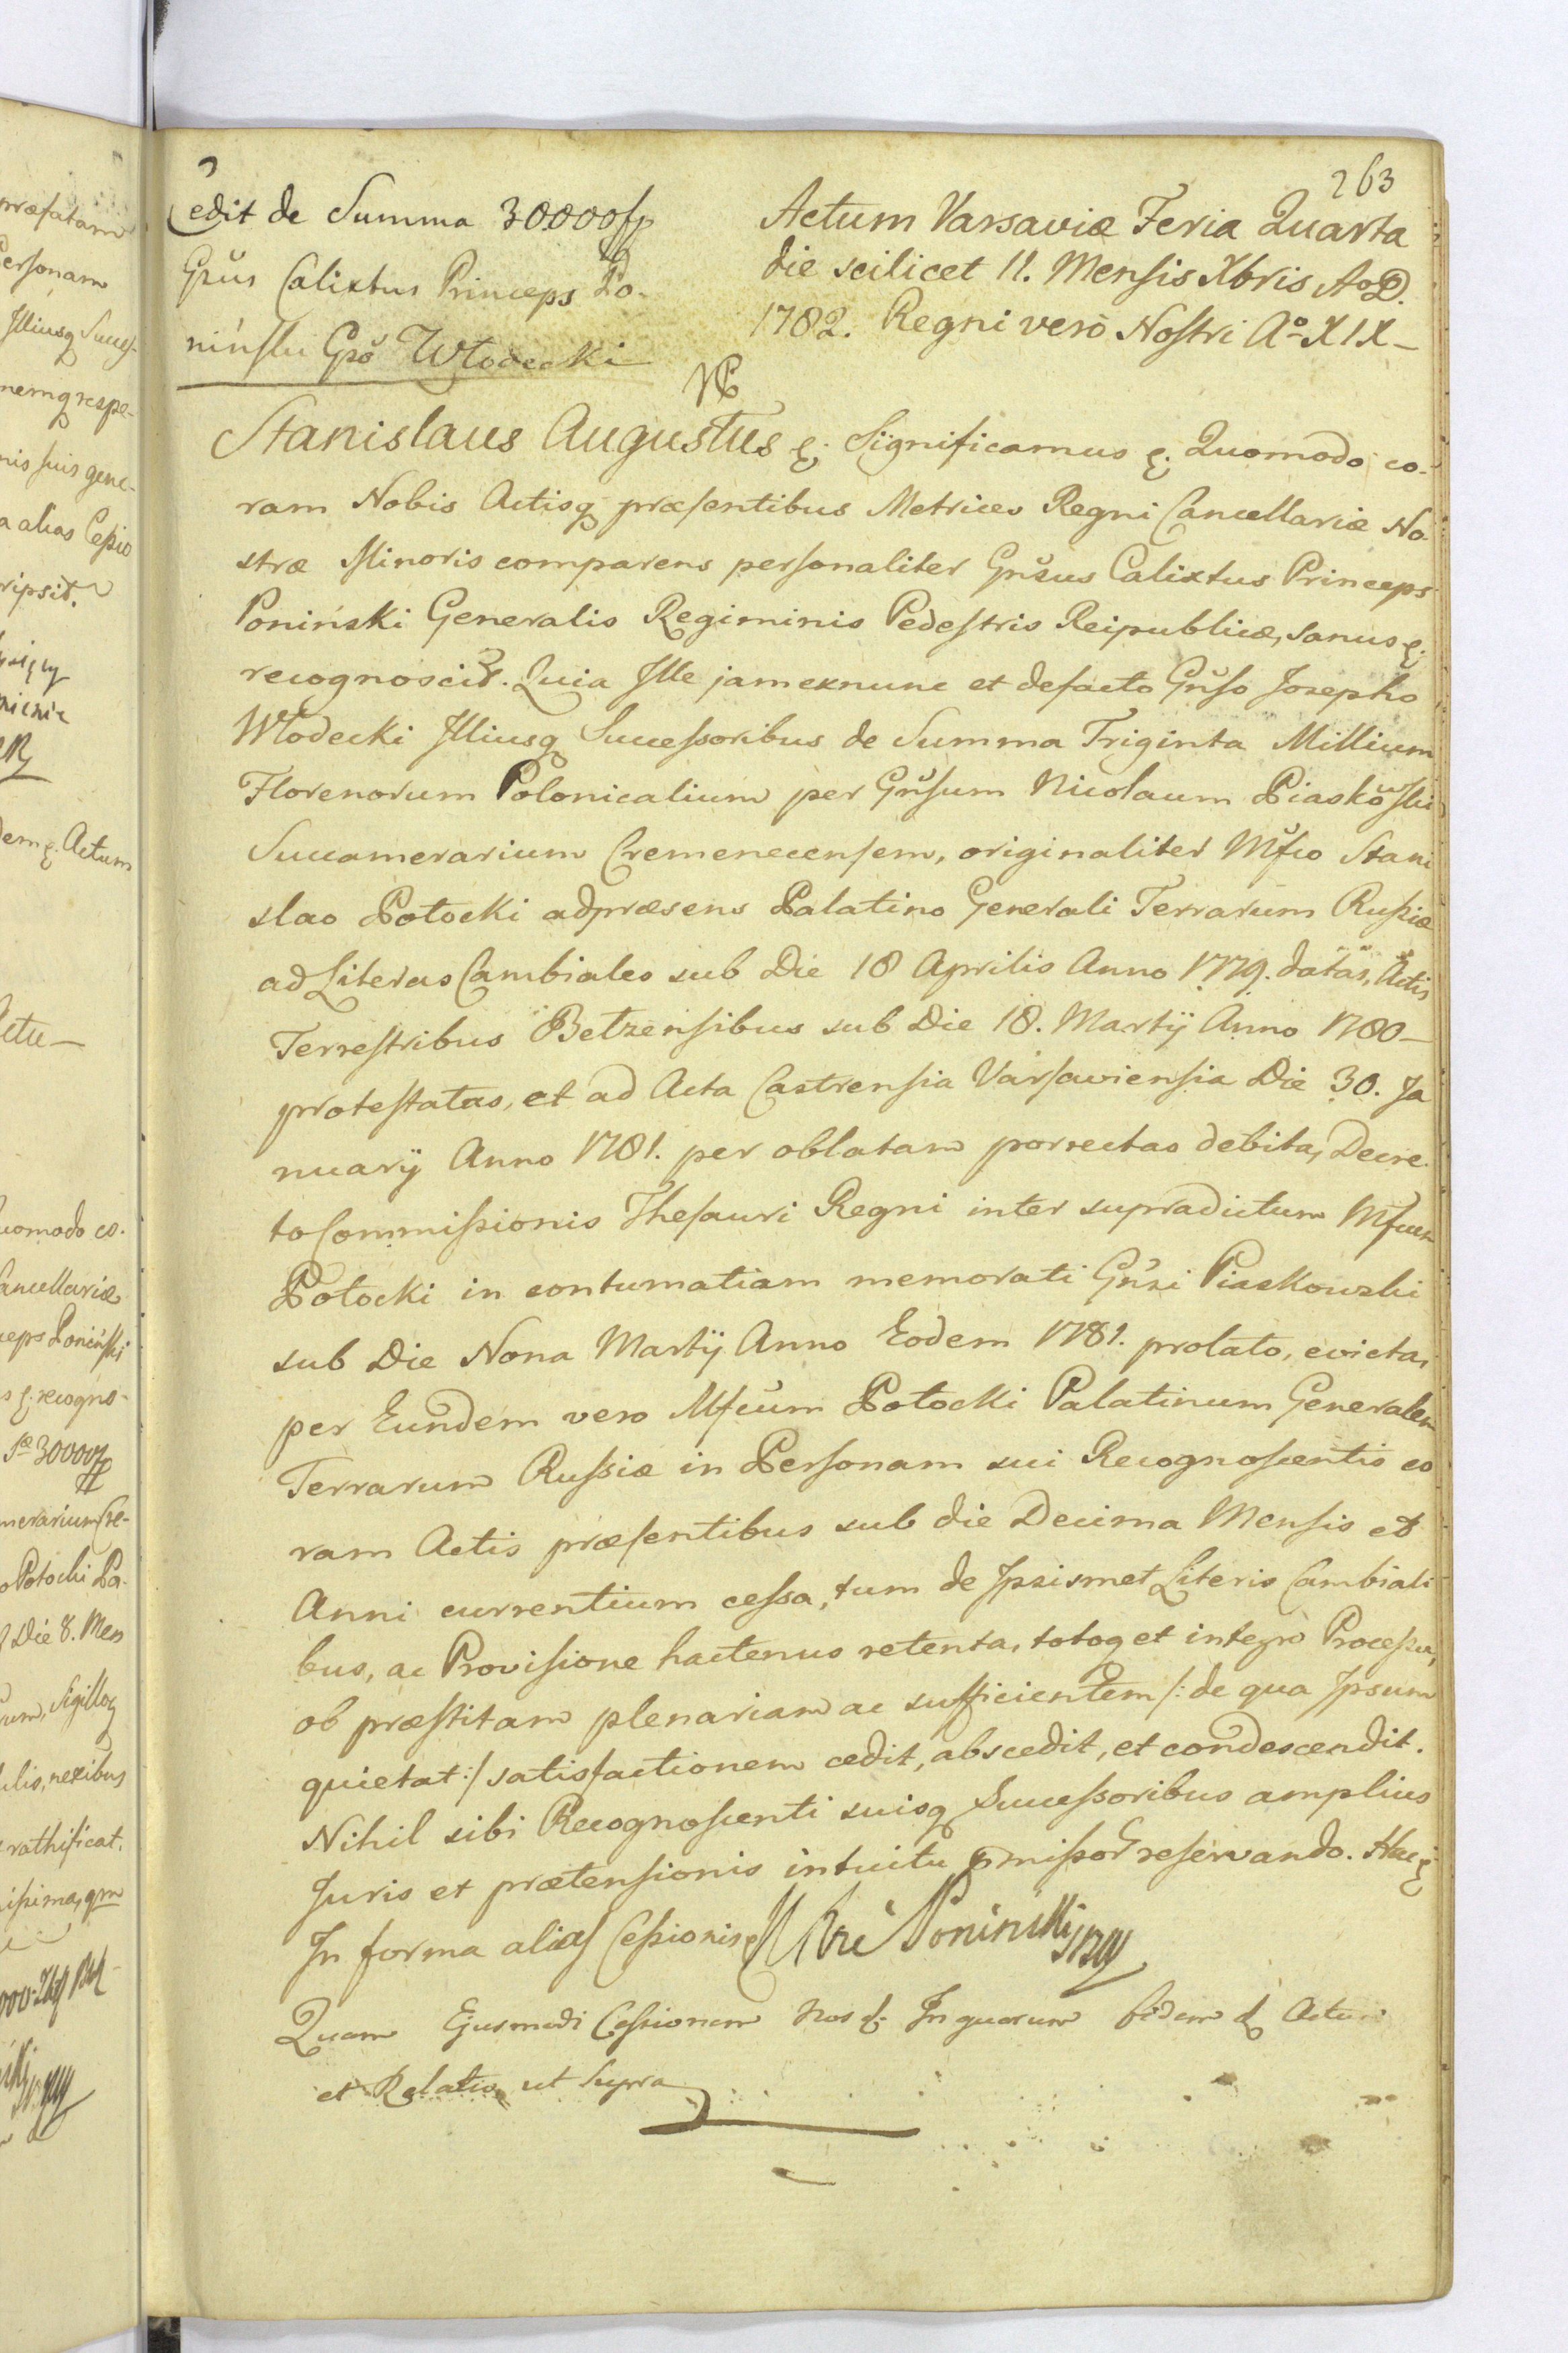 263
Cedit de Summa 30000 fp
Gnus Calixtus Princeps Po-
ninski Gso Włodecki
Actum Varsaviæ Feria Quarta
die scilicet 11. Mensis Xbris AoD.
1782. Regni verò Nostri Ao XIX
Stanislaus Augustus &. Significamus &. Quomodo co-
ram Nobis Actisq præsentibus Metrices Regni Cancellariæ No-
stræ Minoris comparens personaliter Gnsus Calixtus Princeps
Poniński Generalis Regiminis Pedestris Reipublicæ, sanus &.
recognoscit. Quia Ille jam exnunc et defacto Gnso Josepho
Włodecki Illiusq Successoribus de Summa Triginta Millium
Florenorum Polonicalium per Gnsum Nicolaum Piaskowski
Succamerarium Cremenecensem, originaliter Mfco Stani
slao Potocki adpræsens Palatino Generali Terrarum Russiæ
ad Literas Cambiales sub Die 18 Aprilis Anno 1779. datas, Actis
Terrestribus Betzensibus sub Die 18. Martÿ Anno 1780
protestatas, et ad Acta Castrensia Varsaviensia Die 30. Ja
nuarÿ Anno 1781. per oblatam porrectas debita, Decre
to Commissionis Thesauri Regni inter supradictum Mfcum
Potocki in contumatiam memorati Gnsi Piaskowski
sub Die Nona Martÿ Anno Eodem 1781. prolato, evicta,
per Eundem vero Mfcum Potocki Palatinum Generalem
Terrarum Russiæ in Personam sui Recognoscentis co
ram Actis præsentibus sub die Decima Mensis et
Anni currentium cessa, tum de Ipsismet Literis Cambiali
bus, ac Provisione hactenus retenta, totoq et integro Processu,
ob præstitam plenariam ac sufficientem /: de qua Ipsum
quietat :/ satisfactionem cedit, abscedit, et condescendit.
Nihil sibi Recognoscenti suisq Successoribus amplius
Juris et prætensionis intuitu pmissor reservando. Hac &
In forma alias Cessionis Poniński
Quam Ejusmodi Cessionem Nos &. In quorum fidem & Actum
et Relatio ut Supra